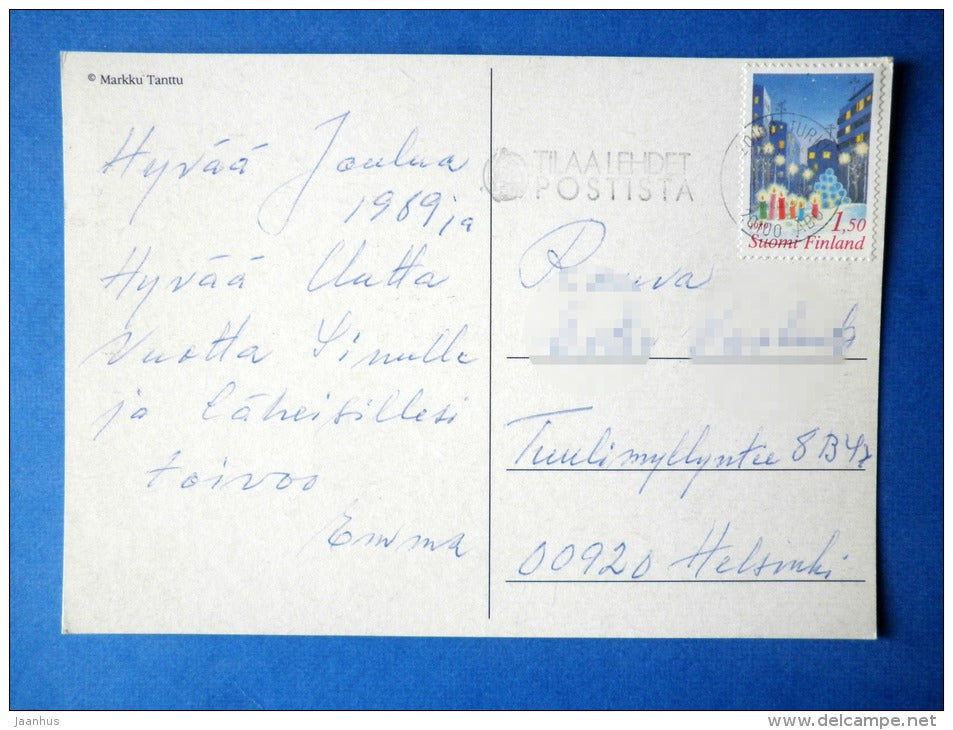 © Markku Tanttu
Hyvää Joulua
1989 ja
Hyvää Uutta
Vuotta Sinulle
ja läheisillesi
toivoo
Emma
TILAA LEHDET
POSTISTA
TURKU
20100 ÅBO
1,50
Suomi Finland
Rouva
Tuulimyllyntie 8 B
00920 Helsinki
Jaanhus
www.delcampe.net